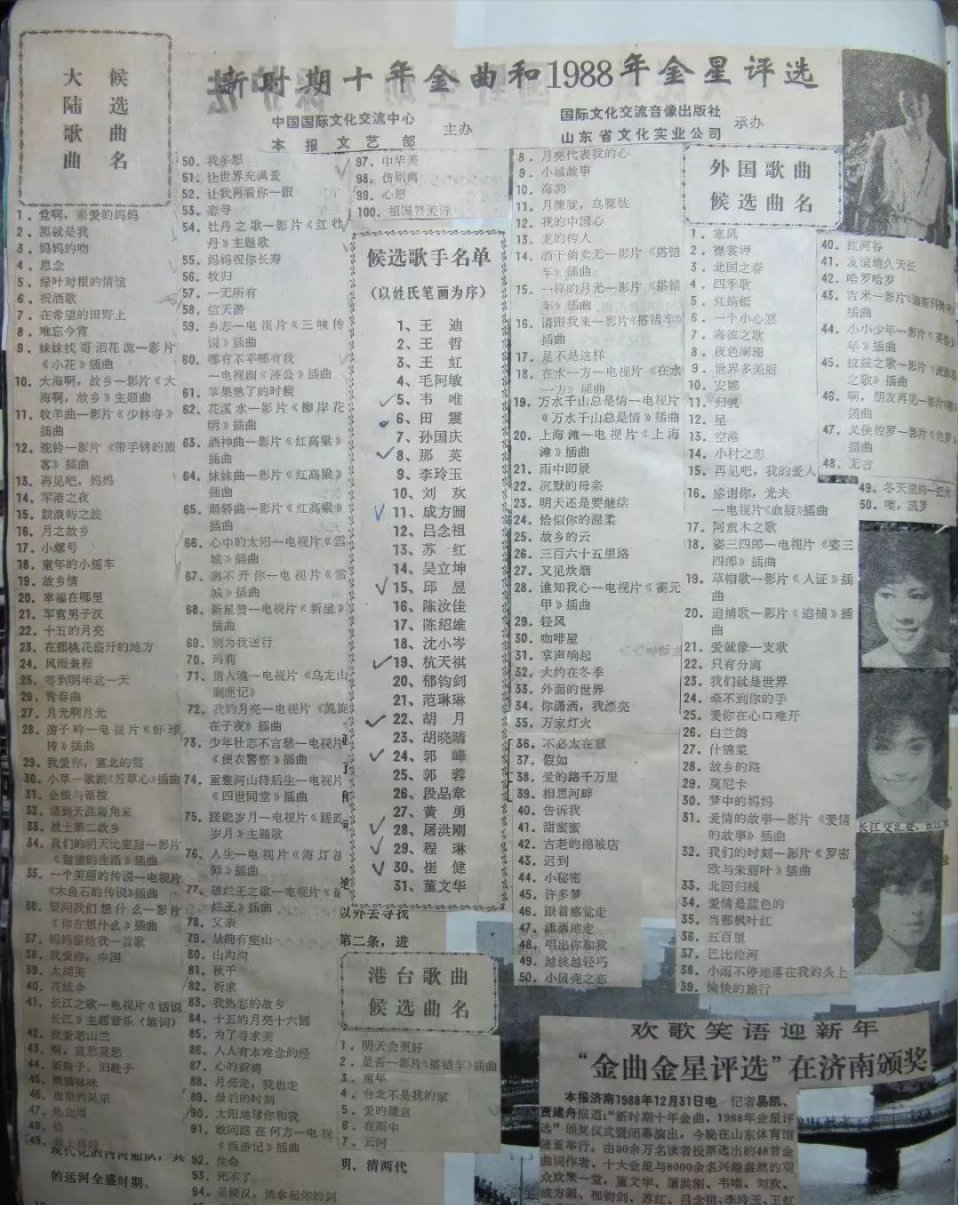 新时期十年金曲和1988年金星评选
中国国际文化交流中心
本报文艺部
主办
国际文化交流音像出版社
山东省文化实业公司
承办
大陆歌曲
候选曲名
1．党啊，亲爱的妈妈
2．那就是我
3．妈妈的吻
4．思念
5．绿叶对根的情谊
6．祝酒歌
7．在希望的田野上
8．难忘今宵
9．妹妹找哥泪花流—影片
《小花》插曲
10．大海啊，故乡—影片《大
海啊，故乡》主题曲
11．牧羊曲—影片《少林寺》
插曲
12．驼铃—影片《带手铐的旅
客》插曲
13．再见吧，妈妈
14．军港之夜
15．鼓浪屿之波
16．月之故乡
17．小螺号
18．童年的小摇车
19．故乡情
20．幸福在哪里
21．军营男子汉
22．十五的月亮
23．在那桃花盛开的地方
24．风雨兼程
25．等到明年这一天
26．青春曲
27．月光啊月光
28．游子吟—电视片《虾球
传》插曲
29．我爱你，塞北的雪
30．小草—歌剧《芳草心》插曲
31．金梭与银梭
32．请到天涯海角来
33．战士第二故乡
34．我们的明天比蜜甜—影片
《甜蜜的生活》插曲
35．一个美丽的传说—电视片
《木鱼石的传说》插曲
36．要问我们想什么—影片
《你在想什么》插曲
37．妈妈留给我一首歌
38．我爱你，中国
39．太湖美
40．花纸伞
41．长江之歌—电视片《话说
长江》主题音乐（填词）
42．我爱老山兰
43．啊，莫愁莫愁
44．新鞋子，旧鞋子
46．血染的风采
47．热血颂
50．我多想
51．让世界充满爱
52．让我再看你一眼
53．恋寻
54．牡丹之歌—影片《红牡
丹》主题歌
55．妈妈祝你长寿
56．牧归
57．一无所有
58．信天游
59．乡恋—电视片《三峡传
说》插曲
60．哪有不平哪有我
—电视剧《济公》插曲
61．苹果熟了的时候
62．花溪水—影片《柳岸花
明》插曲
63．酒神曲—影片《红高粱》
插曲
64．妹妹曲—影片《红高粱》
插曲
65．颠轿曲—影片《红高粱》
插曲
66．心中的太阳—电视片《雪
城》插曲
67．离不开你—电视片《雪
城》插曲
68．新星赞—电视片《新星》
插曲
69．别为我送行
70．玛莉
71．猎人魂—电视片《乌龙山
剿匪记》
72．我的月亮—电视片《凯旋
在子夜》插曲
73．少年壮志不言愁—电视片
《便衣警察》插曲
74．重整河山待后生—电视片
《四世同堂》插曲
75．蹉跎岁月—电视片《蹉跎
岁月》主题歌
76．人生—电视片《海灯法
师》插曲
77．破烂王之歌—电视片《破
烂王》插曲
78．父亲
79．从前有座山
80．山沟沟
81．秋千
82．祈求
83．我热恋的故乡
84．十五的月亮十六圆
85．为了寻求美
86．人人有本难念的经
87．心的祈祷
88．月亮走，我也走
89．最后的时刻
90．太阳地球你和我
91．敢问路在何方—电视
《西游记》插曲
92．生命
93．死不了
94．是硬汉，请拿起你的剑
97．中华美
98．伤别离
99．心愿
100．祖国赞美诗
候选歌手名单
（以姓氏笔画为序）
1、王迪
2、王哲
3、王虹
4、毛阿敏
5、韦唯
6、田震
7、孙国庆
8、那英
9、李玲玉
10、刘欢
11、成方圆
12、吕念祖
13、苏红
14、吴立坤
15、邱昱
16、陈汝佳
17、陈绍雄
18、沈小岑
19、杭天祺
20、郁钧剑
21、范琳琳
22、胡月
23、胡晓晴
24、郭峰
25、郭蓉
26、段品章
27、黄勇
28、屠洪刚
29、程琳
30、崔健
31、董文华
以外去寻找
第二条，进
港台歌曲
候选曲名
1．明天会更好
2．是否—影片《搭错车》插曲
3．童年
4．台北不是我的家
5．爱的箴言
6．在雨中
7．云河
明、清两代
8．月亮代表我的心
9．小城故事
10．海韵
11．月朦胧，鸟朦胧
12．我的中国心
13．龙的传人
14．酒干倘卖无—影片《搭错
车》插曲
15．一样的月光—影片《搭错
车》插曲
16．请跟我来—影片《搭错车》
插曲
17．是不是这样
18．在水一方—电视片《在水
一方》插曲
19．万水千山总是情—电视片
《万水千山总是情》插曲
20．上海滩—电视片《上海
滩》插曲
21．雨中即景
22．沉默的母亲
23．明天还是要继续
24．恰似你的温柔
25．故乡的云
26．三百六十五里路
27．又见炊烟
28．谁知我心—电视片《霍元
甲》插曲
29．轻风
30．咖啡屋
31．掌声响起
32．大约在冬季
33．外面的世界
34．你潇洒，我漂亮
35．万家灯火
36．不必太在意
37．假如
38．爱的路千万里
39．相思河畔
40．告诉我
41．甜蜜蜜
42．古老的棉被店
43．迟到
44．小秘密
45．许多梦
46．跟着感觉走
47．潇洒地走
48．唱出你和我
49．越脉越轻巧
50．小凤亮之恋
外国歌曲
候选曲名
1．寒风
2．襟裳岬
3．北国之春
4．四季歌
5．红蜻蜓
6．一个小心愿
7．海滨之歌
8．夜色阑珊
9．世界多美丽
10．安娜
11．归帆
12．星
13．空港
14．小村之恋
15．再见吧，我的爱人
16．感谢你，光夫
—电视片《血疑》插曲
17．阿童木之歌
18．姿三四郎—电视片《姿三
四郎》插曲
19．草帽歌—影片《人证》插
曲
20．追捕歌—影片《追捕》插
曲
21．爱就像一支歌
22．只有分离
23．我们就是世界
24．牵不到你的手
25．爱你在心口难开
26．白兰鸽
27．什锦菜
28．故乡的路
29．莫尼卡
30．梦中的妈妈
31．爱情的故事—影片《爱情
的故事》插曲
32．我们的时刻—影片《罗密
欧与朱丽叶》插曲
33．北回归线
34．爱情是蓝色的
35．当那枫叶红
36．五百里
37．巴比伦河
38．小雨不停地落在我的头上
39．愉快的旅行
40．红河谷
41．友谊地久天长
42．哈罗哈罗
43．吉米—影片
插曲
44．小小少年—影片《英俊少
年》插曲
45．拉兹之歌—影片《流浪者
之歌》插曲
46．啊，朋友再见—影片
插曲
47．叉侠佐罗—影片《佐罗》
插曲
48．无言
49．冬天里的一把火
50．噢，凯罗
长江交汇处，长江
欢歌笑语迎新年
“金曲金星评选”在济南颁奖
本报济南1988年12月31日电 记者易凯、
贾建舟报道：“新时期十年金曲、1988年金星评
选”颁奖仪式暨闭幕演出，今晚在山东体育馆
隆重举行。由80余万名读者投票选出的48首金
曲词作者、十大金星与8000余名兴趣盎然的观
众欢聚一堂，董文华、屠洪刚、韦唯、刘欢、
成方圆、郁钧剑、苏红、吕念祖、李玲玉、王虹
现代化的内河船队，
的运河全盛时期。